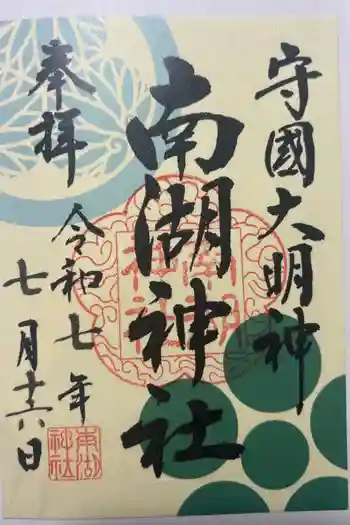 守國大明神
南湖神社
奉拝
令和七年
七月十六日
南湖
神社
南湖
神社